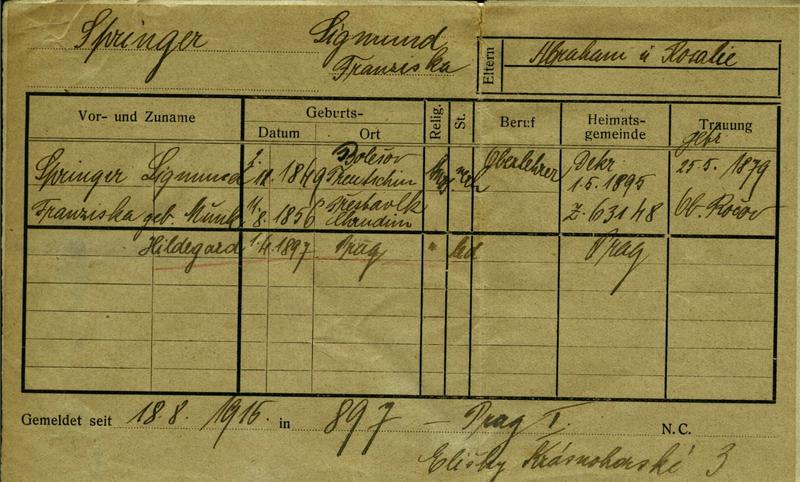 Springer Sigmund
Franziska
Eltern Abraham u Rosalie
Vor- und Zuname Geburts- Datum Ort Relig. St. Beruf Heimats-gemeinde Trauung
Springer Sigmund 12. 1849 Bolešov Trentschin verh Oberlehrer Dekr 1.5. 1895 Z. 63148 25.5. 1879
Franziska geb. Munk 8. 1856 Chrudim
Hildegard 1.4. 1897 Prag " led Prag
Gemeldet seit 18.8. 1915 in 897 – Prag I. N.C.
Elišky Krásnohorské 3